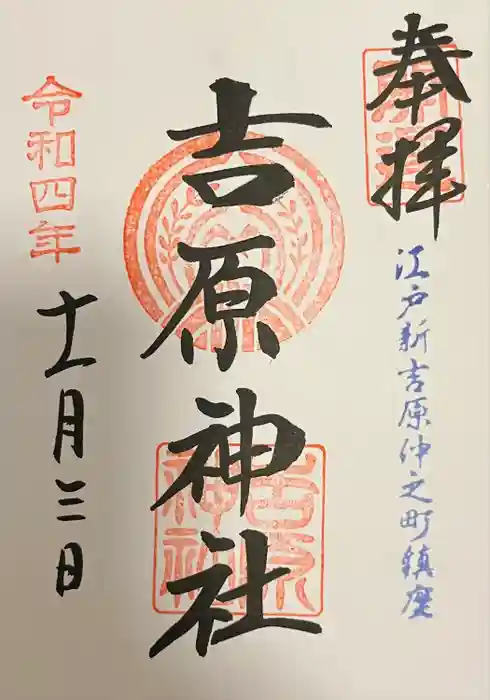 奉拝
江戸新吉原仲之町鎮座
吉原神社
吉原神社
令和四年
十一月三日